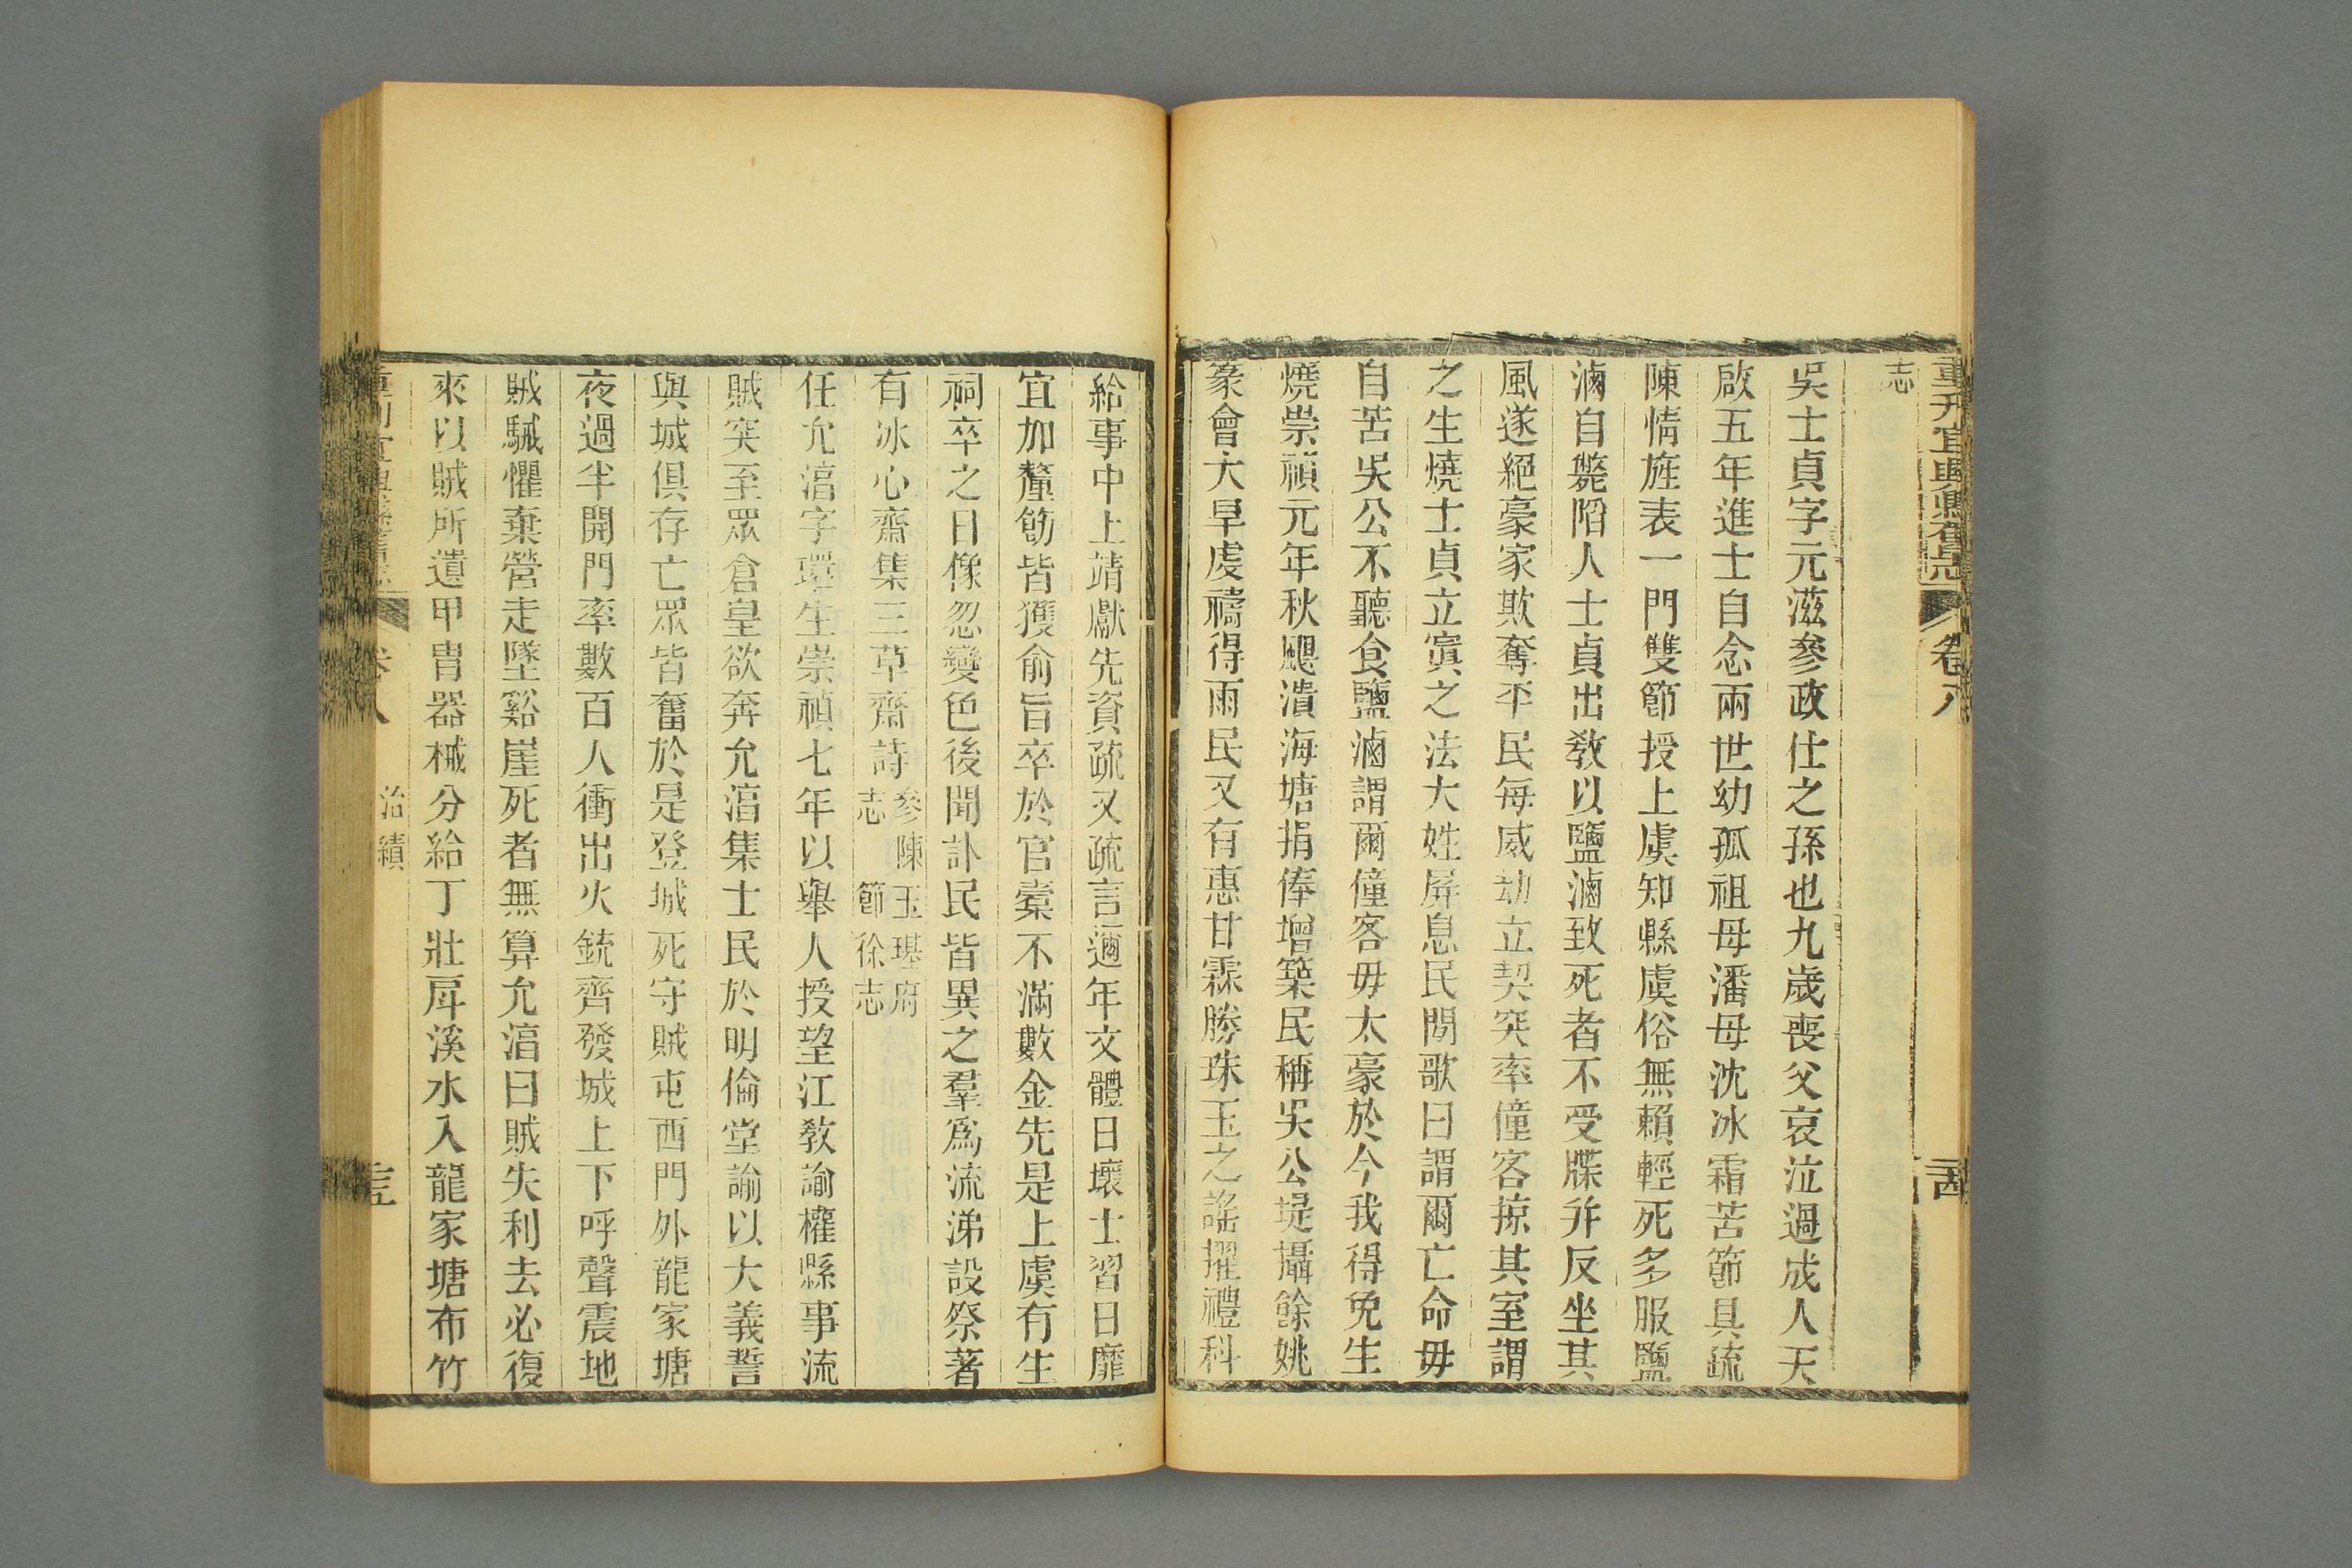 重刋宜興縣舊志 卷八
志
吳士貞字元滋參政仕之孫也九歲喪父哀泣過成人天
啟五年進士自念兩世幼孤祖母潘母沈冰霜苦節具疏
陳情旌表一門雙節授上虞知縣虞俗無賴輕死多服鹽
滷自斃陷人士貞出教以鹽滷致死者不受牒并反坐其
風遂絕豪家欺奪平民每威劫立契突率僮客掠其室謂
之生燒士貞立寘之法大姓屏息民間歌曰謂爾亡命毋
自苦吳公不聽食鹽滷謂爾僮客毋太豪於今我得免生
燒崇禎元年秋颶潰海塘捐俸增築民稱吳公堤攝餘姚
篆會大旱虔禱得雨民又有惠甘霖勝珠玉之謠擢禮科
給事中上靖獻先資疏又疏言邇年文體日壞士習日靡
宜加釐飭皆獲俞旨卒於官橐不滿數金先是上虞有生
祠卒之日像忽變色後聞訃民皆異之羣為流涕設祭著
有冰心齋集三草齋詩 參陳玉璂府志 節徐志
任允淓字環生崇禎七年以舉人授望江教諭權縣事流
賊突至眾倉皇欲奔允淓集士民於明倫堂諭以大義誓
與城俱存亡眾皆奮於是登城死守賊屯西門外龍家塘
夜過半開門率數百人衝出火銃齊發城上下呼聲震地
賊駴懼棄營走墜谿崖死者無算允淓曰賊失利去必復
來以賊所遺甲胄器械分給丁壯戽溪水入龍家塘布竹
重刋宜興縣舊志 卷八 治績